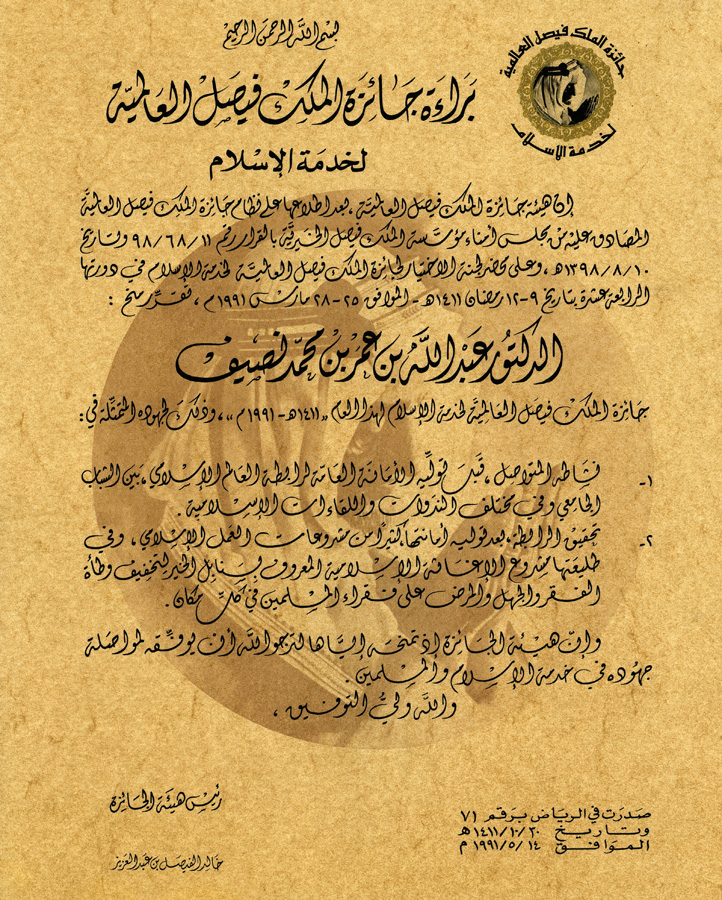 بسم الله الرحمن الرحيم
جائزة الملك فيصل العالمية
لخدمة الإسلام
براءة جائزة الملك فيصل العالمية
لخدمة الإسلام
إن هيئة جائزة الملك فيصل العالمية، بعد اطلاعها على نظام جائزة الملك فيصل العالمية
المصادق عليه من مجلس أمناء مؤسسة الملك فيصل الخيرية بالقرار رقم ٩٨/٦٨/١١ وتاريخ
١٣٩٨/٨/١٠هـ، وعلى محضر لجنة الاختيار لجائزة الملك فيصل العالمية لخدمة الإسلام في دورتها
الرابعة عشرة بتاريخ ٩-١٢ رمضان ١٤١١هـ - الموافق ٢٥-٢٨ مارس ١٩٩١م، تقرر منح :
الدكتور عبد الله بن عمر بن محمد نصيف
جائزة الملك فيصل العالمية لخدمة الإسلام لهذا العام «١٤١١هـ - ١٩٩١م»، وذلك لجهوده المتمثلة في :
١- نشاطه المتواصل، قبل توليه الأمانة العامة لرابطة العالم الإسلامي، بين الشباب
الجامعي وفي مختلف الندوات واللقاءات الإسلامية .
٢- تحقيق الرابطة، بعد توليه أمانتها كثيرًا من مشروعات العمل الإسلامي، وفي
طليعتها مشروع الإغاثة الإسلامية المعروف بسنابل الخير لتخفيف وطأة
الفقر والجهل والمرض على فقراء المسلمين في كل مكان .
وإن هيئة الجائزة إذ تمنحه إياها لترجو الله أن يوفقه لمواصلة
جهوده في خدمة الإسلام والمسلمين .
والله ولي التوفيق ،
رئيس هيئة الجائزة
خالد الفيصل بن عبد العزيز
صدرت في الرياض برقم ٧١
وتاريخ ١٤١١/١٠/٣٠هـ
الموافق ١٩٩١/٥/١٤م